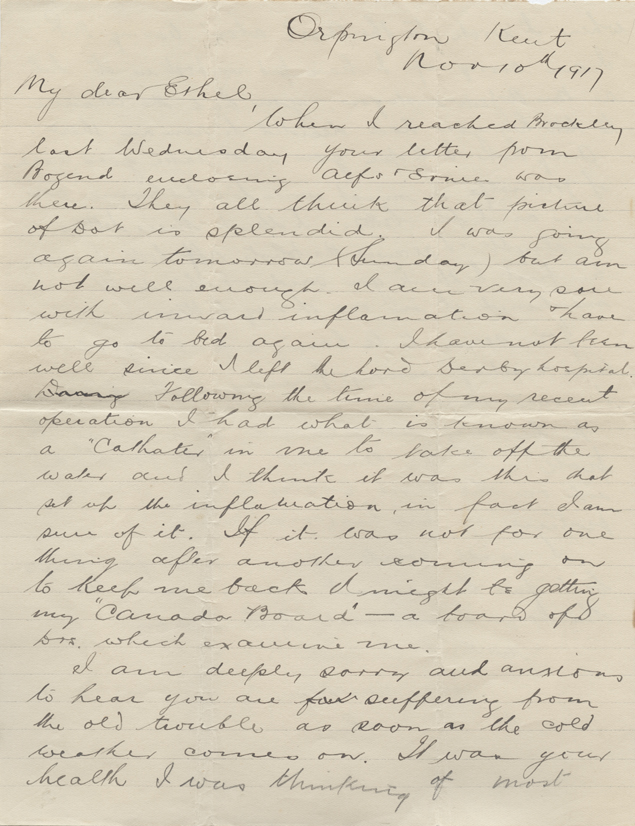 Orpington Kent
Nov 10th 1917
My dear Ethel,
When I reached Brockley
last Wednesday your letter from
Bogend enclosing Alf's & Ernie's was
there. They all think that picture
of Dot is splendid. I was going
again tomorrow (Sunday) but am
not well enough. I am very sore
with inward inflamation & have
to go to bed again. I have not been
well since I left the Lord Derby hospital.
Following the time of my recent
operation I had what is known as
a "Cathater" in me to take off the
water and I think it was this that
set up the inflamation, in fact I am
sure of it. If it was not for one
thing after another coming on
to keep me back I might be getting
my "Canada Board" — a board of
Drs. which examine me.
I am deeply sorry and anxious
to hear you are suffering from
the old trouble as soon as the cold
weather comes on. It was your
health I was thinking of most